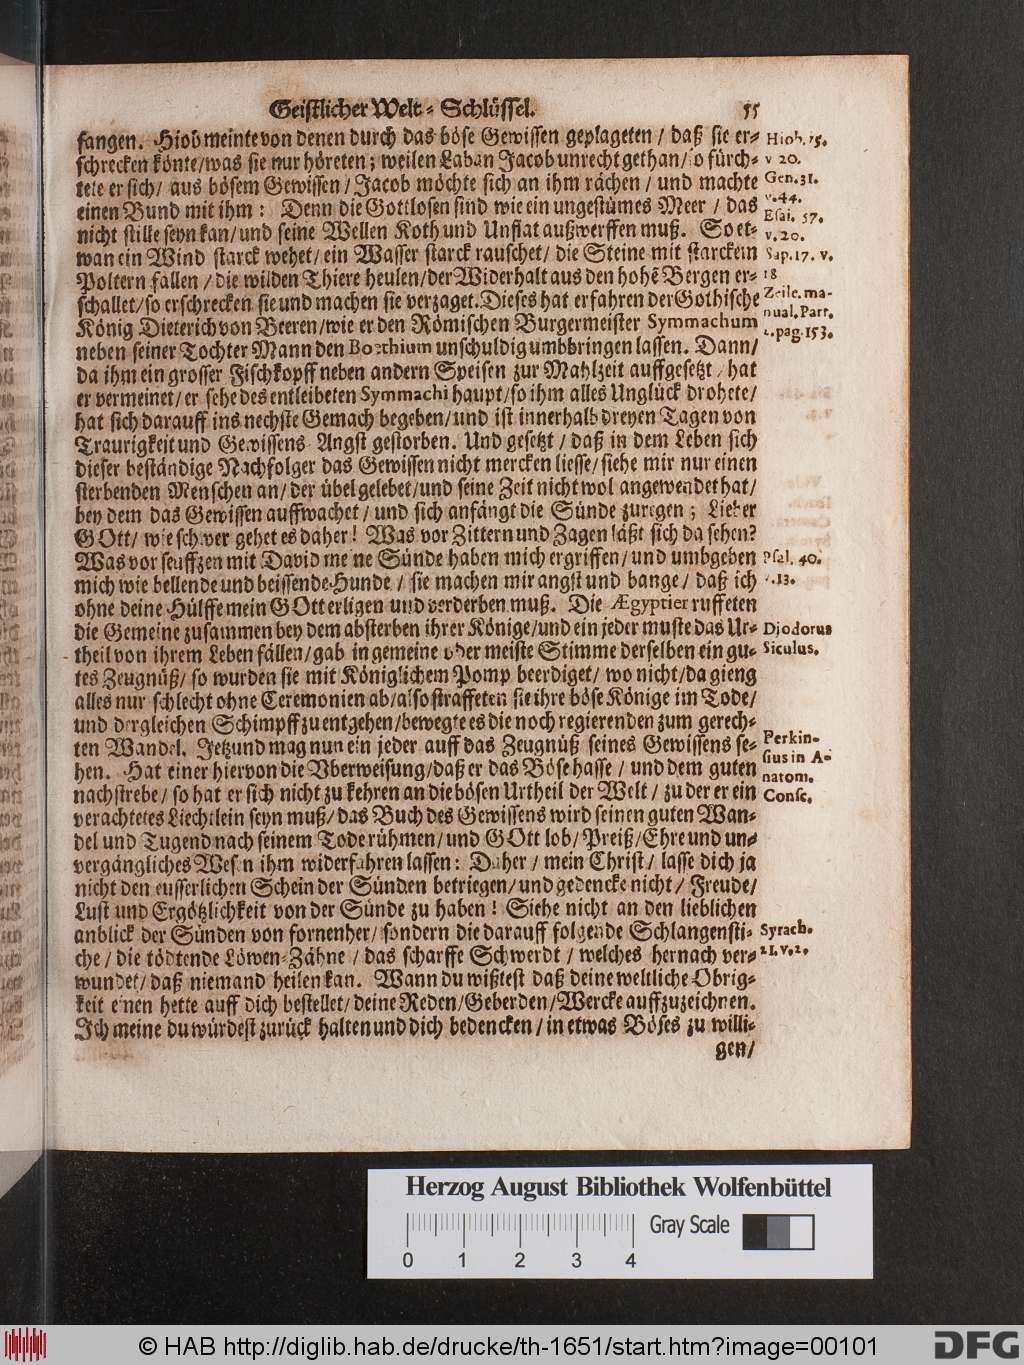 Geistlicher Welt-Schlüssel. 55
fangen. Hiob meinte von denen durch das böse Gewissen geplageten / daß sie er-
schrecken könte/was sie nur höreten; weilen Laban Jacob unrecht gethan/so fürch-
tete er sich/ aus bösem Gewissen/ Jacob möchte sich an ihm rächen / und machte
einen Bund mit ihm: Denn die Gottlosen sind wie ein ungestümes Meer / das
nicht stille seyn kan/und seine Wellen Koth und Unflat außwerffen muß. So et-
wan ein Wind starck wehet/ ein Wasser starck rauschet/ die Steine mit starckem
Poltern fallen / die wilden Thiere heulen/der Widerhalt aus den hohẽ Bergen er-
schallet/so erschrecken sie und machen sie verzaget. Dieses hat erfahren der Gothische
König Dieterich von Beeren/wie er den Römischen Burgermeister Symmachum
neben seiner Tochter Mann den Boethium unschuldig umbbringen lassen. Dann/
da ihm ein grosser Fischkopff neben andern Speisen zur Mahlzeit auffgesetzt / hat
er vermeinet/er sehe des entleibeten Symmachi haupt/so ihm alles Unglück drohete/
hat sich darauff ins nechste Gemach begeben/und ist innerhalb dreyen Tagen von
Traurigkeit und Gewissens Angst gestorben. Und gesetzt / daß in dem Leben sich
dieser beständige Nachfolger das Gewissen nicht mercken liesse/siehe mir nur einen
sterbenden Menschen an/ der übel gelebet/und seine Zeit nicht wol angewendet hat/
bey dem das Gewissen auffwachet / und sich anfängt die Sünde zuregen; Lieber
GOtt/ wie schwer gehet es daher! Was vor Zittern und Zagen läßt sich da sehen?
Was vor seuffzen mit David meine Sünde haben mich ergriffen/und umbgeben
mich wie bellende und beissende Hunde / sie machen mir angst und bange / daß ich
ohne deine Hülffe mein GOtt erligen und verderben muß. Die Ægyptier ruffeten
die Gemeine zusammen bey dem absterben ihrer Könige/und ein jeder muste das Ur-
theil von ihrem Leben fällen/gab in gemeine oder meiste Stimme derselben ein gu-
tes Zeugnüß/ so wurden sie mit Königlichem Pomp beerdiget/ wo nicht/da gieng
alles nur schlecht ohne Ceremonien ab/also straffeten sie ihre böse Könige im Tode/
und dergleichen Schimpff zu entgehen/bewegte es die noch regierenden zum gerech-
ten Wandel. Jetzund mag nun ein jeder auff das Zeugnüß seines Gewissens se-
hen. Hat einer hiervon die Vberweisung/daß er das Böse hasse / und dem guten
nachstrebe/ so hat er sich nicht zu kehren an die bösen Urtheil der Welt / zu der er ein
verachtetes Liechtlein seyn muß/das Buch des Gewissens wird seinen guten Wan-
del und Tugend nach seinem Tode rühmen/und GOtt lob/Preiß/Ehre und un-
vergängliches Wesen ihm widerfahren lassen: Daher / mein Christ/ lasse dich ja
nicht den eusserlichen Schein der Sünden betriegen/und gedencke nicht/ Freude/
Lust und Ergötzlichkeit von der Sünde zu haben! Siehe nicht an den lieblichen
anblick der Sünden von fornenher/ sondern die darauff folgende Schlangensti-
che / die tödtende Löwen-Zähne / das scharffe Schwerdt / welches hernach ver-
wundet/ daß niemand heilen kan. Wann du wißtest daß deine weltliche Obrig-
keit einen hette auff dich bestellet/deine Reden/Geberden/Wercke auffzuzeichnen.
Ich meine du würdest zurück halten und dich bedencken / in etwas Böses zu willi-
gen/
Hiob. 15.
v 20.
Gen. 31.
v. 44.
Esai. 57.
v. 20.
Sap. 17. v.
18
Zeile. ma-
nual. Part.
1. pag. 153.
Psal. 40.
v. 13.
Diodorus
Siculus.
Perkin-
sius in A-
natom.
Consc.
Syrach.
21. v. 2.
Herzog August Bibliothek Wolfenbüttel
0 1 2 3 4
Gray Scale
© HAB http://diglib.hab.de/drucke/th-1651/start.htm?image=00101
DFG